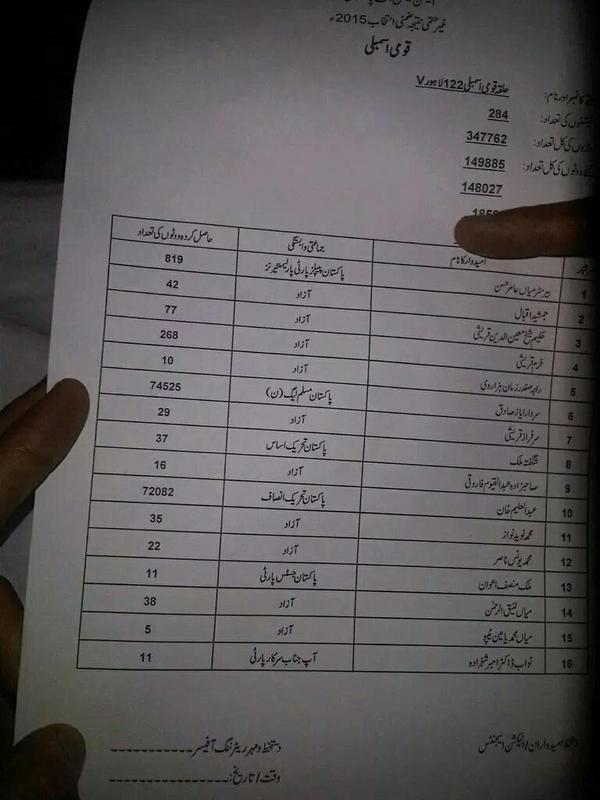 غیر حتمی نتیجہ ضمنی انتخاب 2015ء
قومی اسمبلی
حلقہ قومی اسمبلی 122 لاہور V
کا نمبر اور نام:
284
کی تعداد:
347762
کی کل تعداد:
149885
ووٹوں کی کل تعداد:
148027
امیدوار کا نام جماعتی وابستگی حاصل کردہ ووٹوں کی تعداد
1 بیرسٹر میاں عامر حسن پاکستان پیپلز پارٹی پارلیمنٹیرنز 819
2 جمشید اقبال آزاد 42
3 حکیم شیخ معین الدین قریشی آزاد 77
4 خرم قریشی آزاد 268
5 راجہ صفدر زمان ہزاروی آزاد 10
6 سردار ایاز صادق پاکستان مسلم لیگ (ن) 74525
7 سرفراز قریشی آزاد 29
8 شگفتہ ملک پاکستان تحریک اساس 37
9 صاحبزادہ عبدالقیوم فاروقی آزاد 16
10 عبدالعلیم خان پاکستان تحریک انصاف 72082
11 محمد نوید نواز آزاد 35
12 محمد یونس ناصر آزاد 22
13 ملک منصف اعوان پاکستان جسٹس پارٹی 11
14 میاں لئیق الرحمٰن آزاد 38
15 میاں محمد یامین ٹیپو آزاد 5
16 نواب ڈاکٹر امبر شہزادہ آپ جناب سرکار پارٹی 11
دستخط امیدواران/الیکشن ایجنٹس
دستخط و مہر ریٹرننگ آفیسر
وقت/تاریخ: